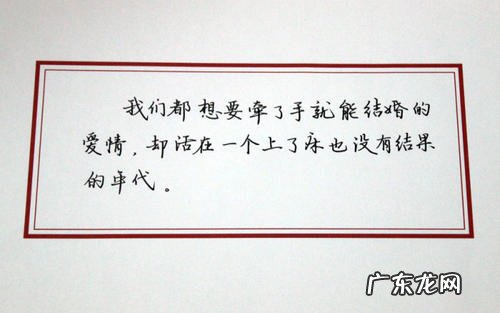 我们都想要牵了手就能结婚的
爱情，却活在一个上了床也没有结果
的年代。
广东龙网